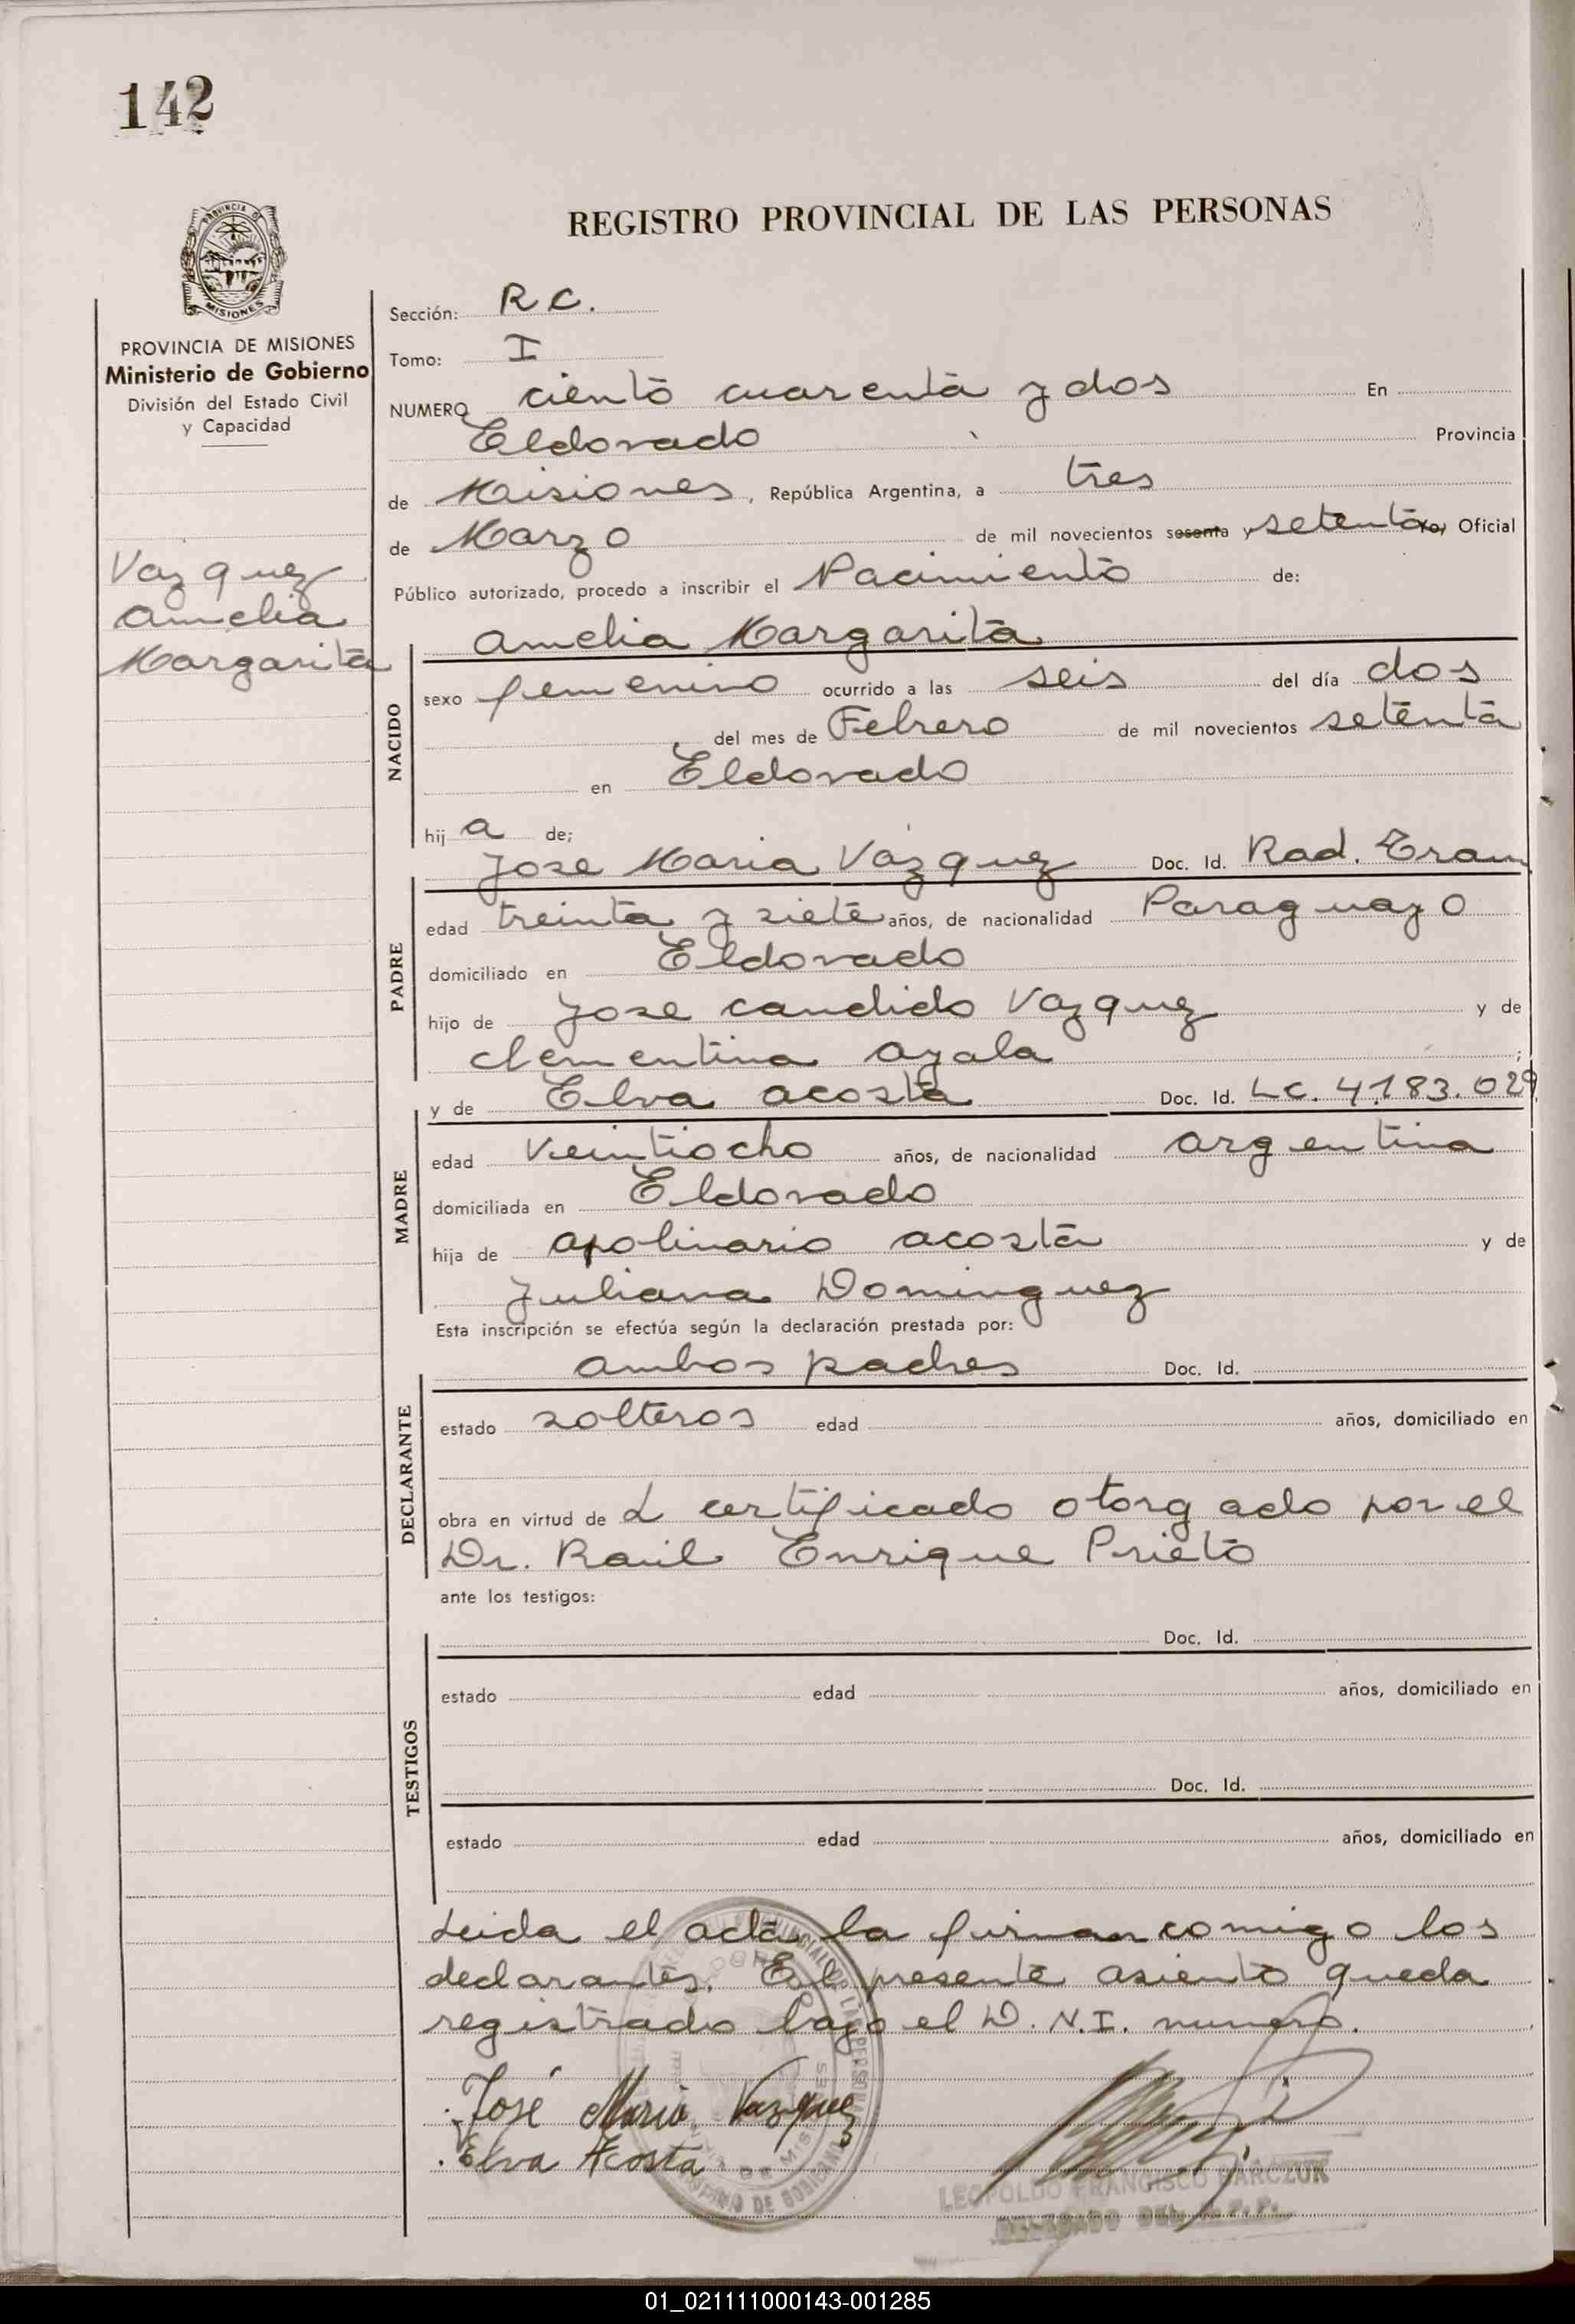 142
REGISTRO PROVINCIAL DE LAS PERSONAS
MISIONES
PROVINCIA DE MISIONES
Ministerio de Gobierno
División del Estado Civil
y Capacidad
Vazquez
Amelia
Margarita
Sección: R C.
Tomo: I
NUMERO ciento cuarenta y dos En
Eldorado Provincia
de Misiones, República Argentina, a tres
de Marzo de mil novecientos sesenta y setenta yo, Oficial
Público autorizado, procedo a inscribir el Nacimiento de:
Amelia Margarita
NACIDO
sexo femenino ocurrido a las seis del día dos
del mes de Febrero de mil novecientos setenta
en Eldorado
hij a de;
Jose Maria Vazquez Doc. Id. Rad. Tram
PADRE
edad treinta y siete años, de nacionalidad Paraguayo
domiciliado en Eldorado
hijo de Jose candido Vazquez y de
Clementina Ayala ;
y de Elva Acosta Doc. Id. LC. 4.183.029
MADRE
edad Veintiocho años, de nacionalidad argentina
domiciliada en Eldorado
hija de Apolinario Acosta y de
Juliana Dominguez
Esta inscripción se efectúa según la declaración prestada por:
ambos padres Doc. Id.
DECLARANTE
estado solteros edad años, domiciliado en
obra en virtud de L certificado otorgado por el
Dr. Raúl Enrique Prieto
ante los testigos:
Doc. Id.
TESTIGOS
estado edad años, domiciliado en
Doc. Id.
estado edad años, domiciliado en
Leida el acta la firman comigo los
declarantes. El presente asiento queda
registrado bajo el D.N.I. numero.
José María Vazquez
Elva Acosta
LEOPOLDO FRANCISCO BARCZUK
DELEGADO DEL R.P.P.
01_021111000143-001285